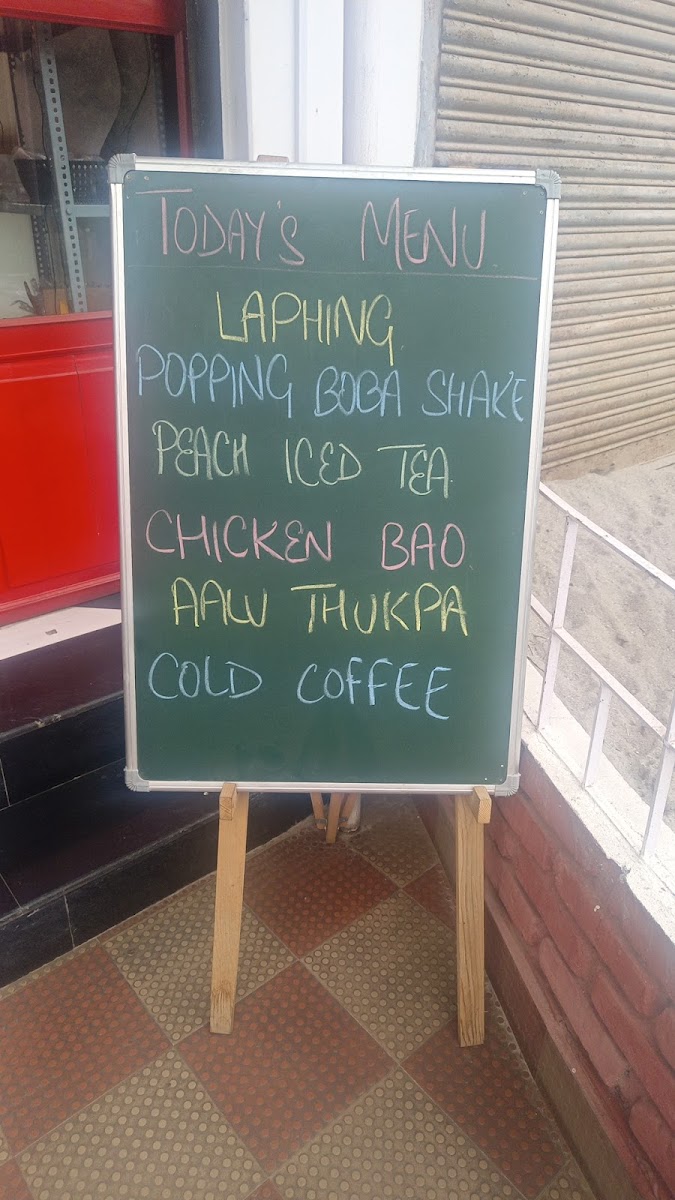 TODAY'S MENU
LAPHING
POPPING BOBA SHAKE
PEACH ICED TEA
CHICKEN BAO
AALU THUKPA
COLD COFFEE